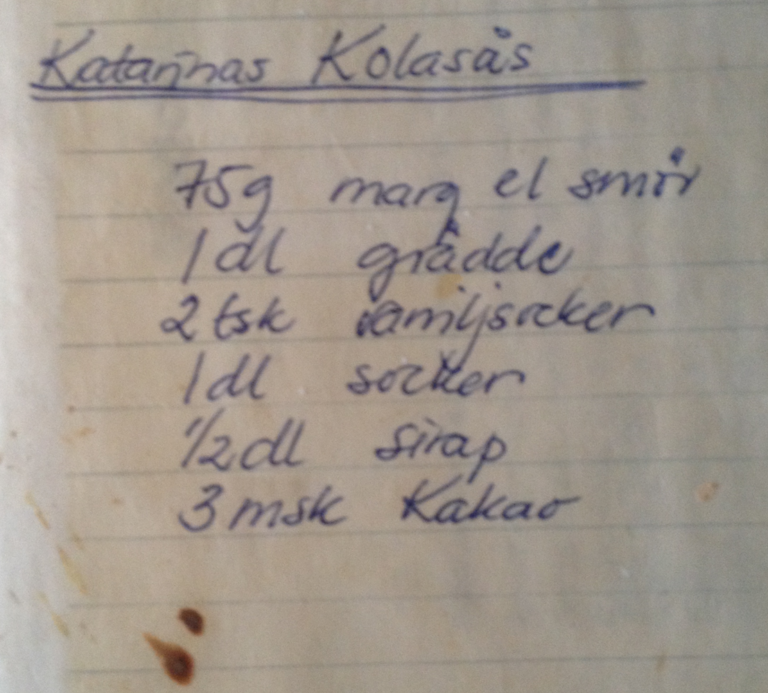 Katarinas Kolasås
75g marg el smör
1 dl grädde
2 tsk vaniljsocker
1 dl socker
1/2 dl sirap
3 msk Kakao